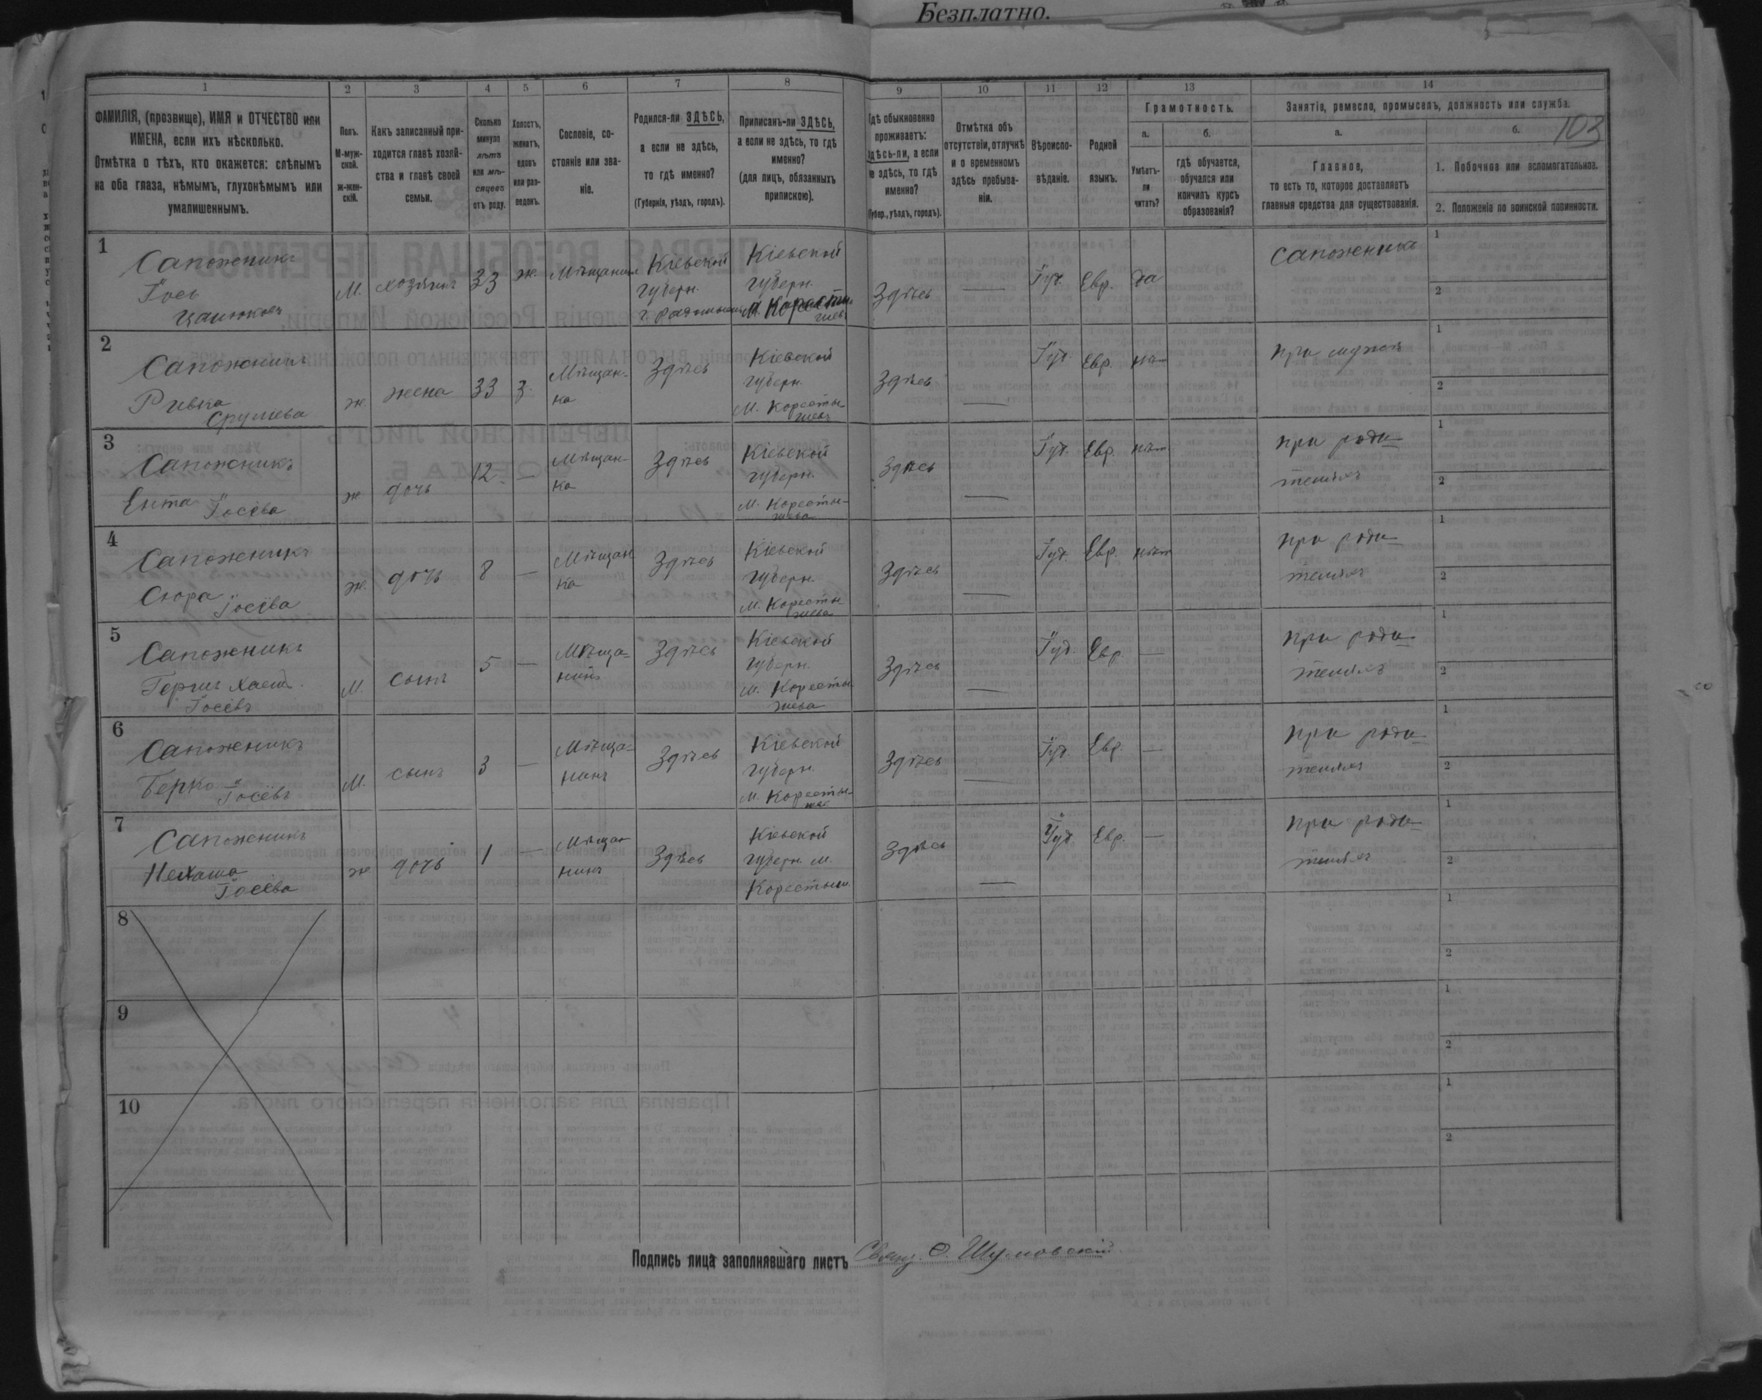 Безплатно.
103
1 2 3 4 5 6 7 8 9 10 11 12 13 14
ФАМИЛІЯ, (прозвище), ИМЯ и ОТЧЕСТВО или
ИМЕНА, если ихъ нѣсколько.
Отмѣтка о тѣхъ, кто окажется: слѣпымъ
на оба глаза, нѣмымъ, глухонѣмымъ или
умалишеннымъ.
Полъ.
М-муж-
ской.
ж-жен-
скій.
Какъ записанный при-
ходится главѣ хозяй-
ства и главѣ своей
семьи.
Сколько
минуло
лѣтъ
или мѣ-
сяцевъ
отъ роду.
Холостъ,
женатъ,
вдовъ
или раз-
веденъ.
Сословіе, со-
стояніе или зва-
ніе.
Родился-ли ЗДѢСЬ,
а если не здѣсь,
то гдѣ именно?
(Губернія, уѣздъ, городъ).
Приписанъ-ли ЗДѢСЬ,
а если не здѣсь, то гдѣ
именно?
(для лицъ, обязанныхъ
припискою).
Гдѣ обыкновенно
проживаетъ:
здѣсь-ли, а если
не здѣсь, то гдѣ
именно?
(Губер., уѣздъ, городъ).
Отмѣтка объ
отсутствіи, отлучкѣ
и о временномъ
здѣсь пребыва-
ніи.
Вѣроиспо-
вѣданіе.
Родной
языкъ.
Грамотность.
а.
Умѣетъ-
ли
читать?
б.
гдѣ обучается,
обучался или
кончилъ курсъ
образованія?
Занятіе, ремесло, промыселъ, должность или служба.
а.
Главное,
то есть то, которое доставляетъ
главныя средства для существованія.
б.
1. Побочное или вспомогательное.
2. Положеніе по воинской повинности.
1
Сапожникъ
Іось
М.
хозяинъ
33
ж.
Мѣщанинъ
Кіевской
губерн.
Кіевской
губерн.
Здѣсь
—
Іуд.
Евр.
да
Сапожникъ
1
2
2
Сапожникъ
Ривка
Срулева
ж
жена
33
з.
Мѣщан-
ка
Здѣсь
Кіевской
губерн.
М. Коросты-
шевъ
Здѣсь
—
Іуд.
Евр.
при мужѣ
1
2
3
Сапожникъ
Ента Іосева
ж
дочь
12
—
Мѣщан-
ка
Здѣсь
Кіевской
губерн.
М. Коросты-
шева
Здѣсь
—
Іуд.
Евр.
нѣт
при роди-
теляхъ
1
2
4
Сапожникъ
Сюра Іосева
ж.
дочь
8
—
Мѣщан
ка
Здѣсь
Кіевской
губерн.
М. Коросты-
шева
Здѣсь
—
Іуд.
Евр.
нѣт
при роди-
теляхъ
1
2
5
Сапожникъ
Іосевъ
М.
сынъ
5
—
Мѣща-
нинъ
Здѣсь
Кіевской
губерн.
М. Коросты
шева
Здѣсь
—
Іуд.
Евр.
—
при роди-
теляхъ
1
2
6
Сапожникъ
Берко Іосевъ
М.
сынъ
3
—
Мѣща-
нинъ
Здѣсь
Кіевской
губерн.
М. Коросты-
Здѣсь
—
Іуд.
Евр.
—
При роди-
теляхъ
1
2
7
Сапожникъ
Іосева
ж
дочь
1
—
Мѣща-
нинъ
Здѣсь
Кіевской
губерн. М.
Здѣсь
—
Іуд.
Евр.
—
при роди-
теляхъ
1
2
8
1
2
9
1
2
10
1
2
Подпись лица заполнявшаго листъ Свящ. Шумовскій